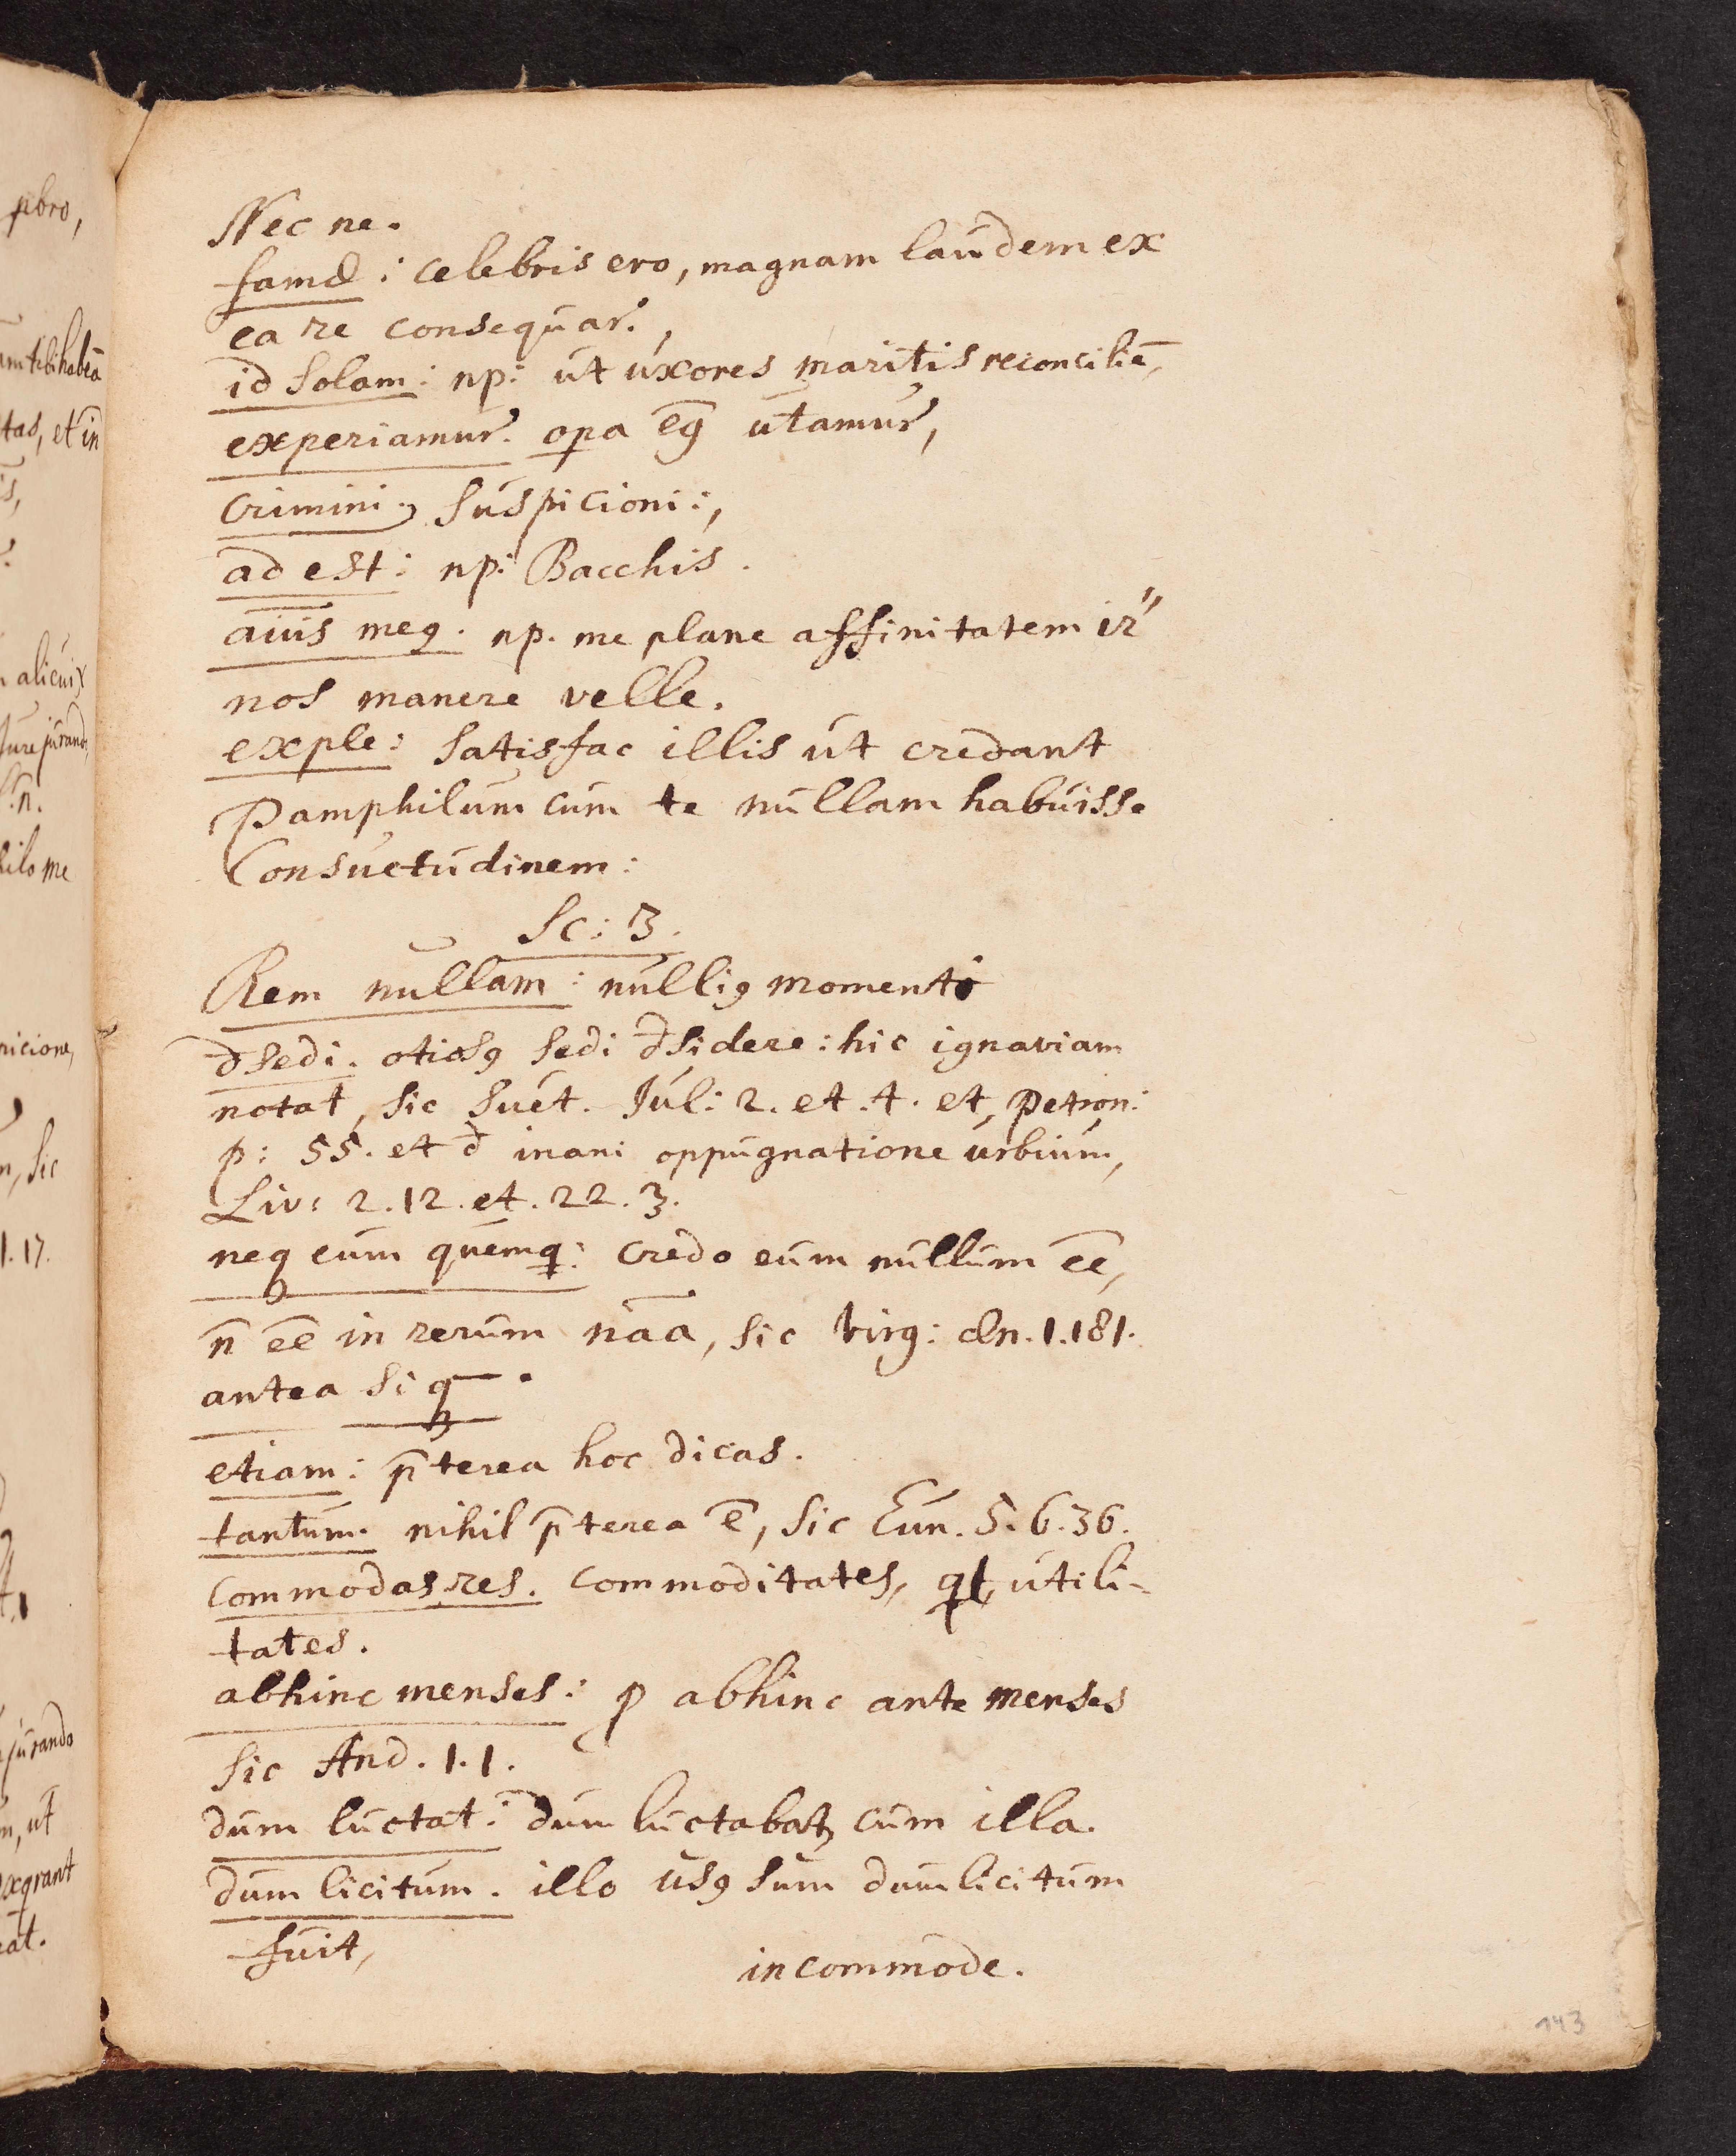 Nec ne.
famæ : celebris ero, magnam laudem ex
ea re consequar.,
id solam : np: ut uxores maritis reconciliē,
experiamur. opa eꝗ utamur,
crimini. suspicioni:,
ad est : np: Bacchis.
meꝯ. np. me plane affinitatem ir̄
nos manere velle.
exple : satisfac illis ut credant
Pamphilum cum te nullam habuisse
Consuetudinem :
Sc : 3.
Rem nullam : nulliꝯ momenti
đsedi. otiosꝯ sedi đsidere : hic ignaviam
notat, sic Suet. Jul : 2. et. 4. et, Petron :
p : 55. et đ inani oppugnatione urbium,
Liv : 2. 12. et. 22. 3.
neq eum quemꝗ : credo eum nullum ēē,
n̄ ēē in rerum nāā, sic Virg : Æn. 1. 181.
antea si q .
etiam : p̄terea hoc dicas.
tantum. nihil p̄terea ē, sic Eun. 5. 6. 36.
commodas res. commoditates, utili-
tates.
abhinc menses : p abhinc ante menses
sic And. 1. 1.
dum luctat : dum luctabat cum illa.
dum licitum. illo usꝯ sum dum licitum
fuit,
incommode.
143
pbro,
tas, et in
alicui
jurand
hilo me
picione,
n, sic
1. 17.
jurando
ut